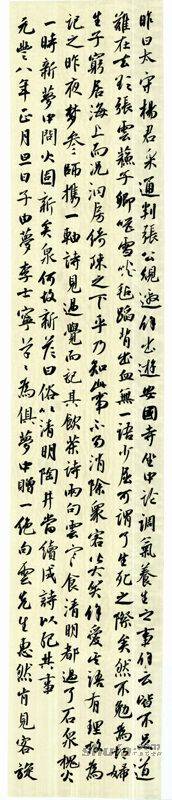 昨日太守楊君采通判張公規邀余出遊安國寺坐中論調氣養生之事余云皆不足道
難在去欲張雲蘇子卿嚙雪啖氈蹈背出血無一語少屈可謂了生死之際矣然不免為胡婦
生子窮居海上而況洞房綺疎之下乎乃知此事不易消除眾客皆大笑余愛其語有理故為
記之昨夜夢參師攜一軸詩見過覺而記其飲茶詩兩句雲寒食清明都過了石泉槐火
一時新夢中問火固新矣泉何故新答曰俗以清明陶井當續成詩以紀其事
元豐八年正月旦日子由夢李士寧草草為俱夢中贈一絕句雲先生惠然肯見客旋